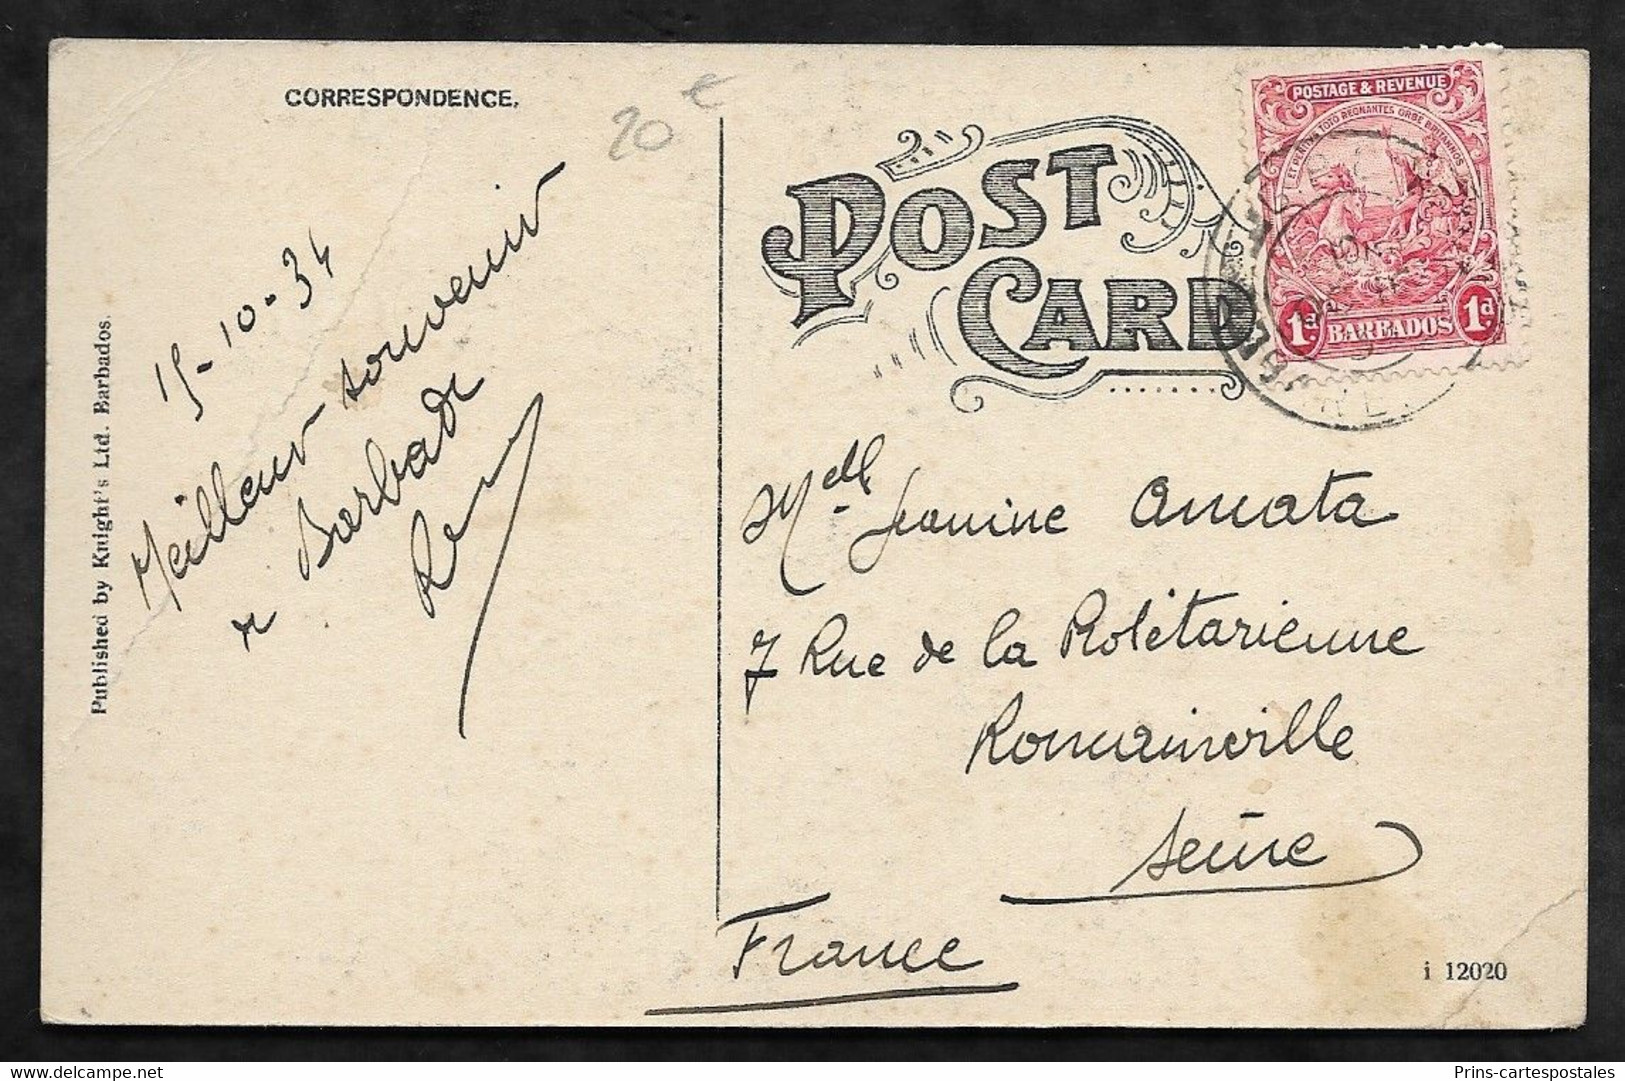 CORRESPONDENCE.
20 €
15-10-34
Meilleur souvenir
de Barbade
Published by Knight's Ltd. Barbados.
POST
CARD
POSTAGE & REVENUE
ET PENITUS TOTO REGNANTES ORBE BRITANNOS
1d. BARBADOS 1d.
Melle Jeanine Amata
7 Rue de la Prolétarienne
Romainville
Seine
France
i 12020
Prins-cartespostales